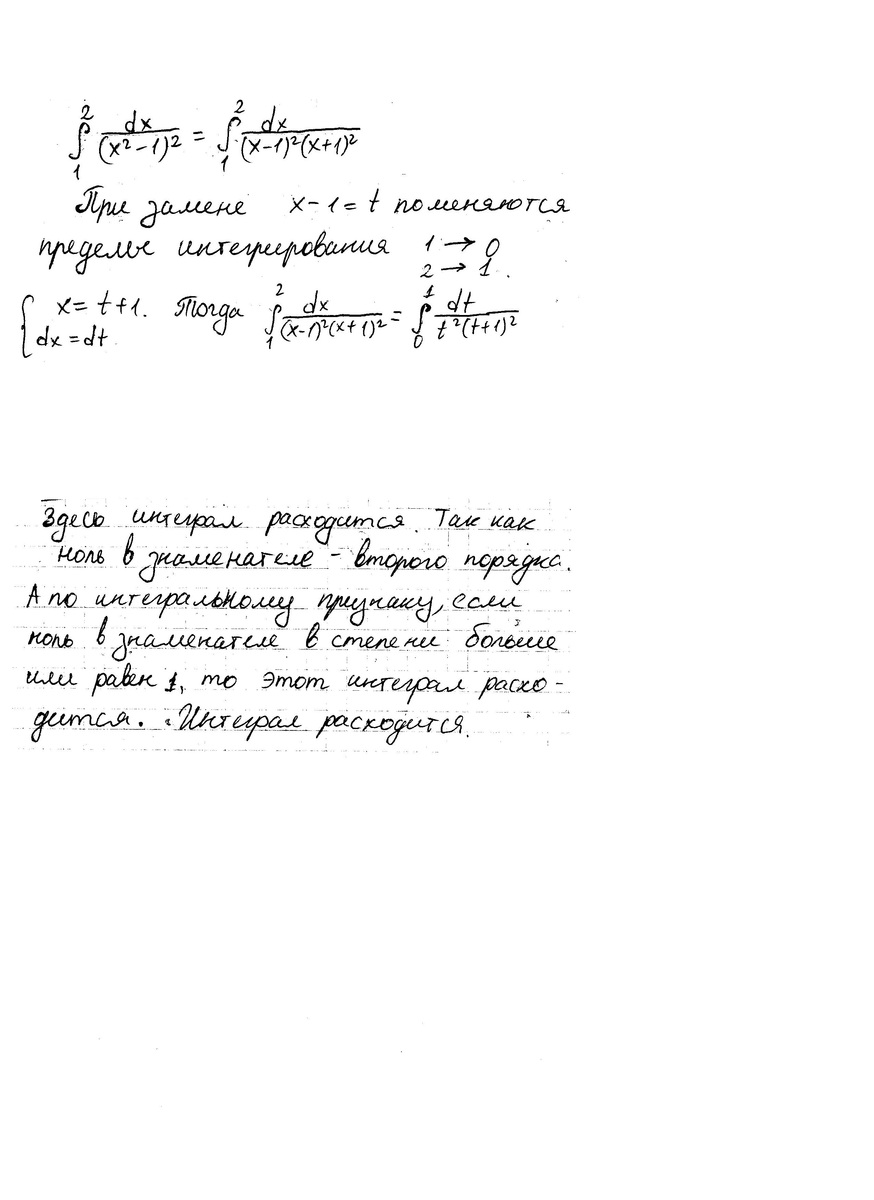 ∫₁² dx/(x²-1)² = ∫₁² dx/(x-1)²(x+1)²
При замене x-1=t поменяются
пределы интегрирования 1→0
2→1.
{ x=t+1. Тогда ∫₁² dx/(x-1)²(x+1)² = ∫₀¹ dt/t²(t+1)²
dx=dt
Здесь интеграл расходится. Так как
ноль в знаменателе - второго порядка.
А по интегральному признаку, если
ноль в знаменателе в степени больше
или равен 1, то этот интеграл расхо-
дится. Интеграл расходится.